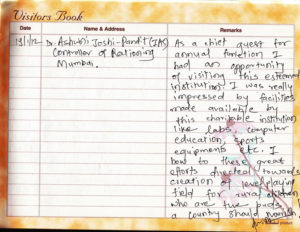 Visitors Book
Date
Name & Address
Remarks
13/1/12
Dr. Ashwini Joshi-Pandit (IAS)
Controller of Rationing
Mumbai.
As a chief guest for
annual function I
had an opportunity
of visiting this esteemed
institution. I was really
impressed by facilities
made available by
this charitable institution
like labs, computer
education, sports
equipments etc. I
bow to these great
efforts directed towards
creation of level playing
field for rural children
who are the
a country should nourish